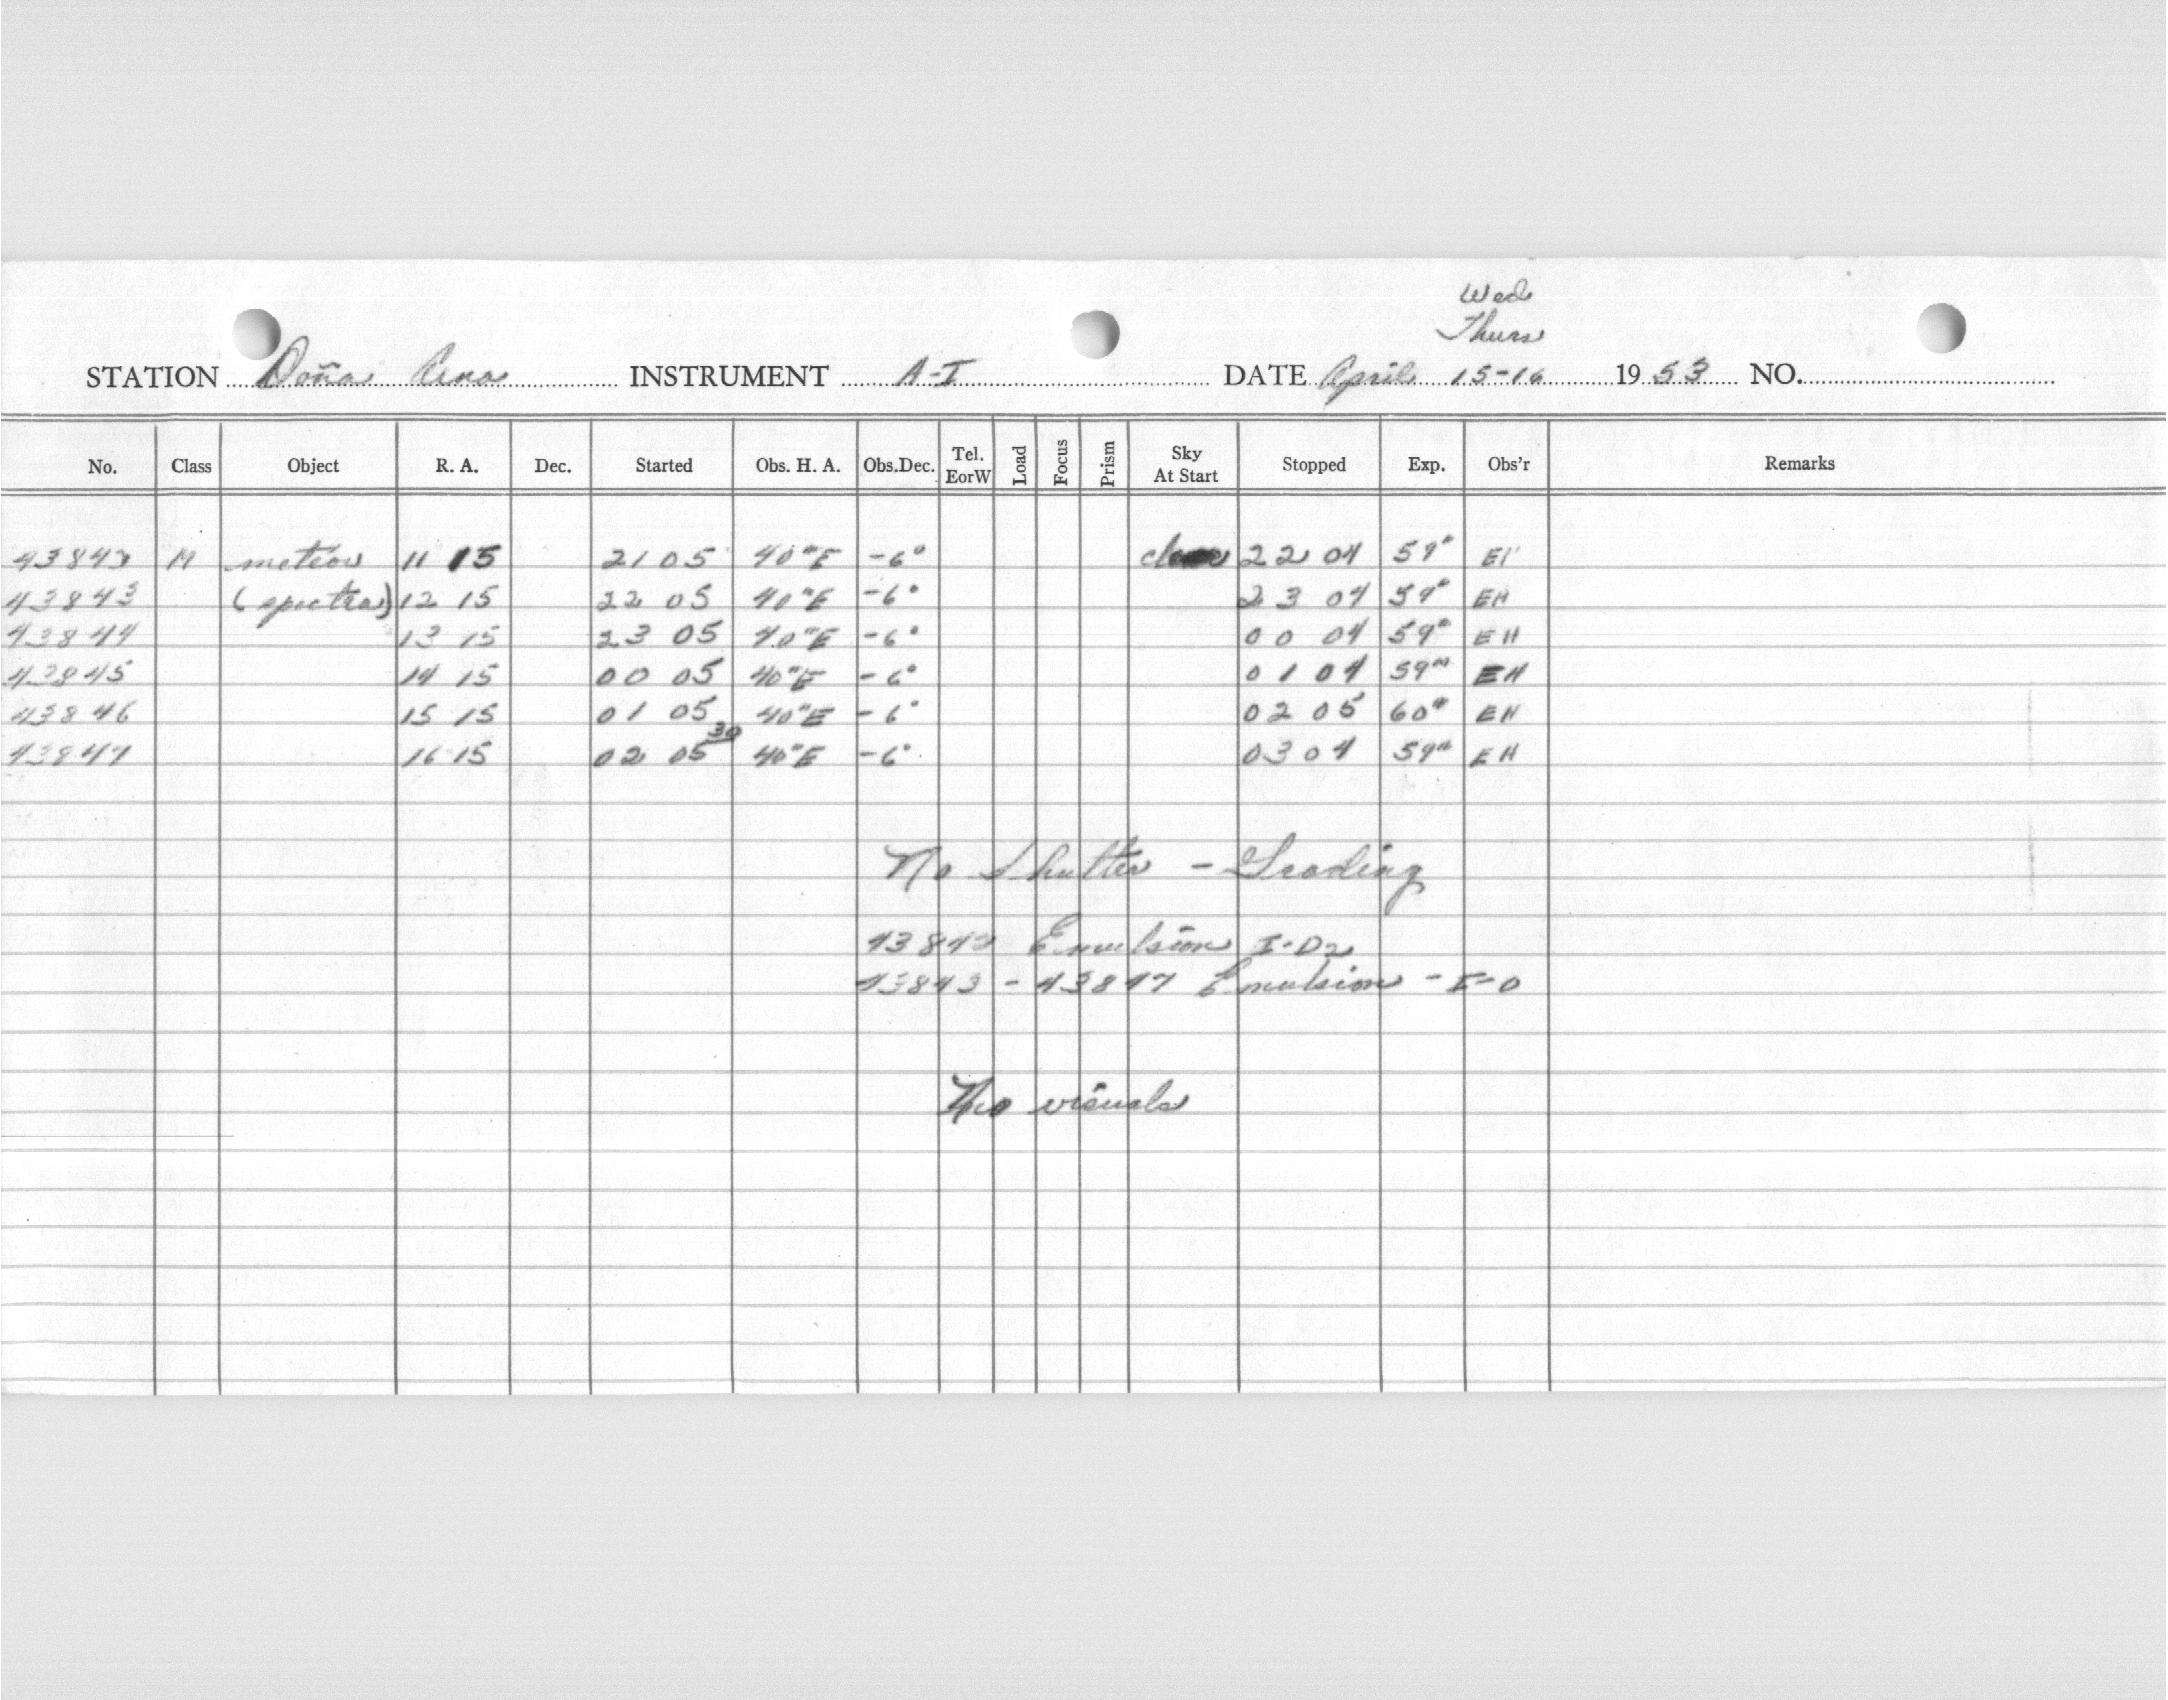 Wed
Thurs
STATION Doña Ana INSTRUMENT A-I DATE April 15-16 1953 NO.
No. Class Object R. A. Dec. Started Obs. H. A. Obs.Dec. Tel. EorW Load Focus Prism Sky At Start Stopped Exp. Obs'r Remarks
43842 M meteor 11 15 21 05 40ᵐE -6° clear 22 04 59ᵐ EH
43843 (spectra) 12 15 22 05 40ᵐE -6° 23 04 59ᵐ EH
43844 13 15 23 05 40ᵐE -6° 00 04 59ᵐ EH
43845 14 15 00 05 40ᵐE -6° 01 04 59ᵐ EH
43846 15 15 01 05 40ᵐE -6° 02 05 60ᵐ EH
43847 16 15 02 05 30 40ᵐE -6° 03 04 59ᵐ EH
No Shutter - Grading
43842 Emulsion I-D2
43843 - 43847 Emulsion - I-O
No visuals